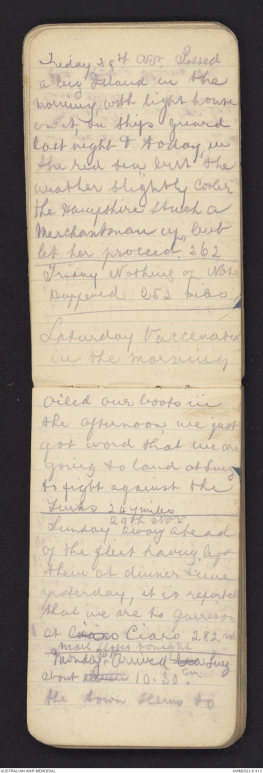 Friday 29th Nov. Passed
a big Island in the
morning with light house
on it, on ships guard
last night & today, in
the red sea but the
weather slightly cooler
the Hampshire stuck a
Merchantman up but
let her proceed. 262
Friday Nothing of Note
Happened 252 miles.
Saturday Vaccinated
in the morning
oiled our boots in
the afternoon, we just
got word that we are
going to land at Suez
to fight against the
Turks 264 miles
29th Nov.
Sunday away ahead
of the fleet having left
them at dinner time
yesterday, it is reported
that we are to garrison
at Cairo Ciaro 282 m
mail closes tonight
Monday 30th Arrived Suez
about 10.30.
the town seems to
AUSTRALIAN WAR MEMORIAL